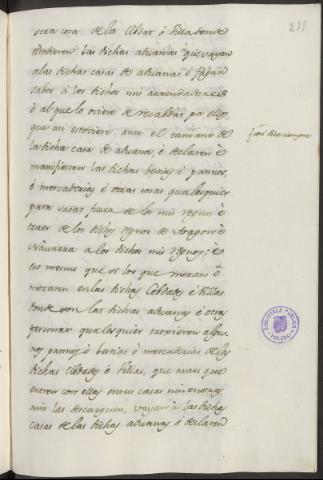 235
otra cosa de la Cibdat ó Villa donde
estovieren las dichas aduanas que vayan
a las dichas casas de aduanas é fagan
saber á los dichos mis arrendadores
ó al que lo oviere de recabdar por ellos,
que asi estoviere, ante el tamaño de
la dicha casa de aduana, é declaren é
manifiesten las dichas bestias é pannos,
é mercaderias é otras cosas qualesquier
para sacar fuera de los mis regnos é
traer de los dichos regnos de Aragon é
Navarra a los dichos mis regnos, é
eso mesmo que si los que moran ó
moraren en las dichas Cibdades é Villas
donde son las dichas aduanas é otras
personas qualesquier troxieren algu-
nos pannos é bestias é mercaderias de las
dichas Cibdades é Villas, que antes que
entren con ellas en sus casas nin en otras
nin las descarguen, vayan á las dichas
casas de las dichas aduanas é declaren
BIBLIOTECA PUBLICA
TOLEDO